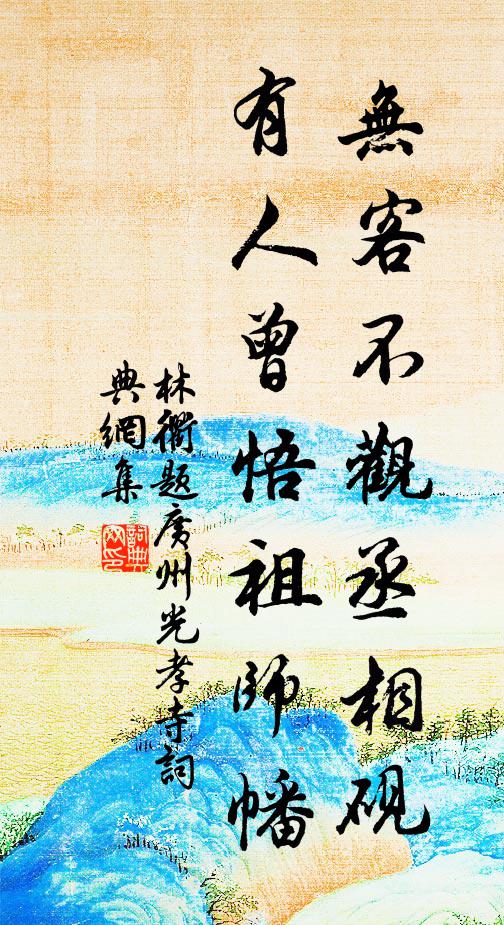 無客不觀丞相硯
有人曾悟祖師幡
林衢題廣州光孝寺詞
典網集